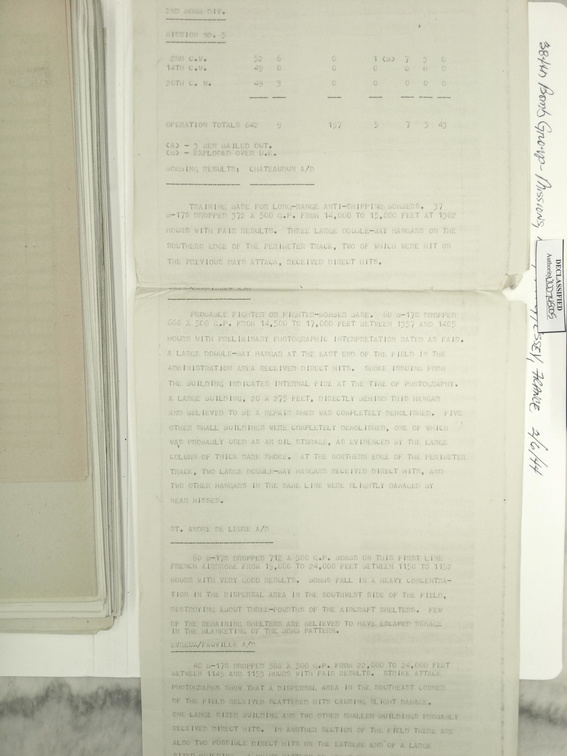 2ND BOMB DIV.
MISSION NO. 5
2ND C.W. 52 6 0 1 (B) 7 3 0
14TH C.W. 49 0 0 0 0 0 0
20TH C. W. 49 3 0 0 0 0 0
OPERATION TOTALS 642 9 197 5 7 3 43
(A) - 3 MEN BAILED OUT.
(B) - EXPLODED OVER
BOMBING RESULTS: CHATEAUDUN A/D
TRAINING BASE FOR LONG-RANGE ANTI-SHIPPING BOMBERS. 37
B-17S DROPPED 372 X 500 G.P. FROM 14,000 TO 15,000 FEET AT 1302
HOURS WITH FAIR RESULTS. THREE LARGE DOUBLE-BAY HANGARS ON THE
SOUTHERN EDGE OF THE PERIMETER TRACK, TWO OF WHICH WERE HIT ON
THE PREVIOUS DAYS ATTACK, RECEIVED DIRECT HITS.
PROBABLE FIGHTER OR FIGHTER-BOMBER BASE. 60 B-17S DROPPED
666 X 500 G.P. FROM 14,500 TO 17,000 FEET BETWEEN 1357 AND 1405
HOURS WITH PRELIMINARY PHOTOGRAPHIC INTERPRETATION RATED AS FAIR.
A LARGE DOUBLE-BAY HANGAR AT THE EAST END OF THE FIELD IN THE
ADMINISTRATION AREA RECEIVED DIRECT HITS. SMOKE ISSUING FROM
THE BUILDING INDICATES INTERNAL FIRE AT THE TIME OF PHOTOGRAPHY.
A LARGE BUILDING, 50 X 275 FEET, DIRECTLY BEHIND THIS HANGAR
AND BELIEVED TO BE A REPAIR SHOP WAS COMPLETELY DEMOLISHED. FIVE
OTHER SMALL BUILDINGS WERE COMPLETELY DEMOLISHED, ONE OF WHICH
WAS PROBABLY USED AS AN OIL STORAGE, AS EVIDENCED BY THE LARGE
COLUMN OF THICK DARK SMOKE. AT THE SOUTHERN EDGE OF THE PERIMETER
TRACK, TWO LARGE DOUBLE-BAY HANGARS RECEIVED DIRECT HITS, AND
TWO OTHER HANGARS IN THE SAME LINE WERE SLIGHTLY DAMAGED BY
NEAR MISSES.
ST. ANDRE DE LEURE A/D
60 B-17S DROPPED 712 X 500 G.P. BOMBS ON THIS FIRST LINE
FRENCH AIRDROME FROM 19,000 TO 24,000 FEET BETWEEN 1150 TO 1152
HOURS WITH VERY GOOD RESULTS. BOMBS FALL IN A HEAVY CONCENTRA-
TION IN THE DISPERSAL AREA IN THE SOUTHWEST SIDE OF THE FIELD,
DESTROYING ABOUT THREE-FOURTHS OF THE AIRCRAFT SHELTERS. FEW
OF THE REMAINING SHELTERS ARE BELIEVED TO HAVE ESCAPED DAMAGE
IN THE BLANKETING OF THE BOMB PATTERN.
EVREUX/FAUVILLE A/D
B-17S DROPPED 500 G.P. FROM 22,000 TO 24,000 FEET
BETWEEN 1149 AND 1153 HOURS WITH FAIR RESULTS. STRIKE ATTACK
PHOTOGRAPHS SHOW THAT A DISPERSAL AREA IN THE SOUTHEAST CORNER
OF THE FIELD RECEIVED SCATTERED HITS CAUSING SLIGHT DAMAGE.
ONE LARGE SIZED BUILDING AND TWO OTHER SMALLER BUILDINGS PROBABLY
RECEIVED DIRECT HITS. IN ANOTHER SECTION OF THE FIELD THERE ARE
ALSO TWO POSSIBLE DIRECT HITS ON THE EXTREME END OF A LARGE
SIZED BUILDING.
384th Bomb Group - Missions,
FRANCE 2/6/44
DECLASSIFIED
Authority